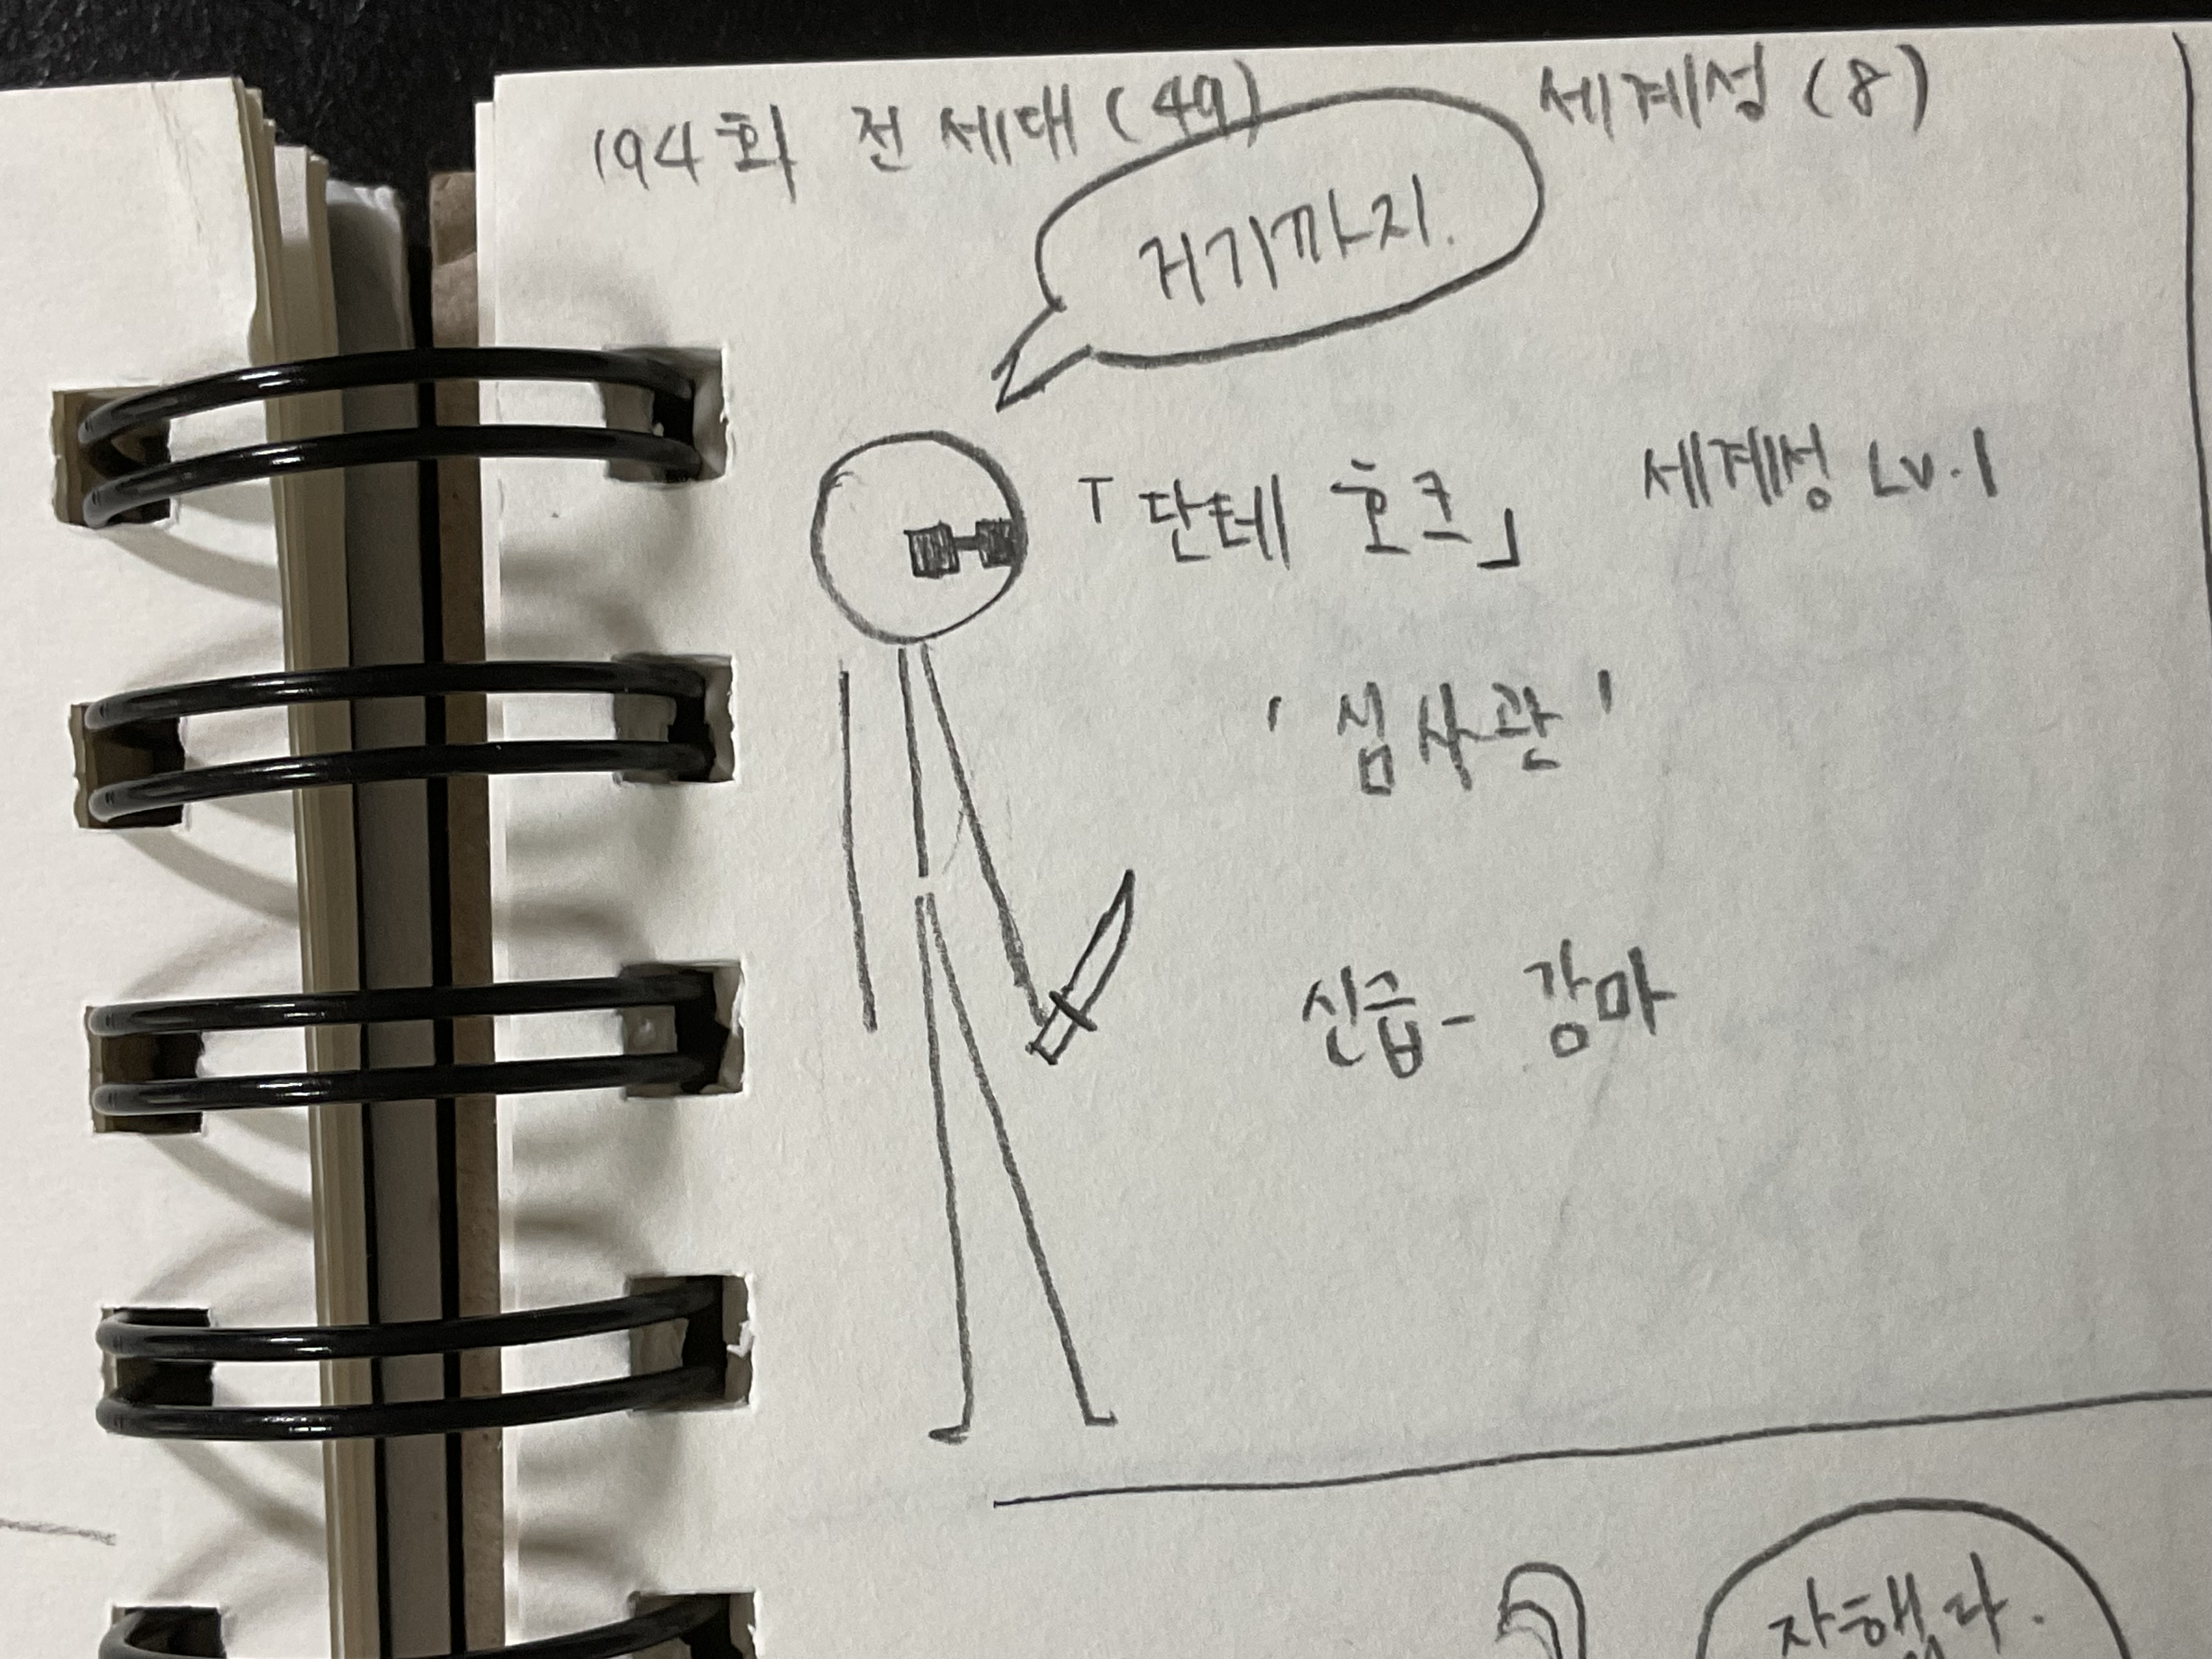 194회 전 세대 (49) 세계성 (8)
거기까지.
「단테 호크」 세계성 Lv.1
'심사관'
신급 - 강마
자했다.